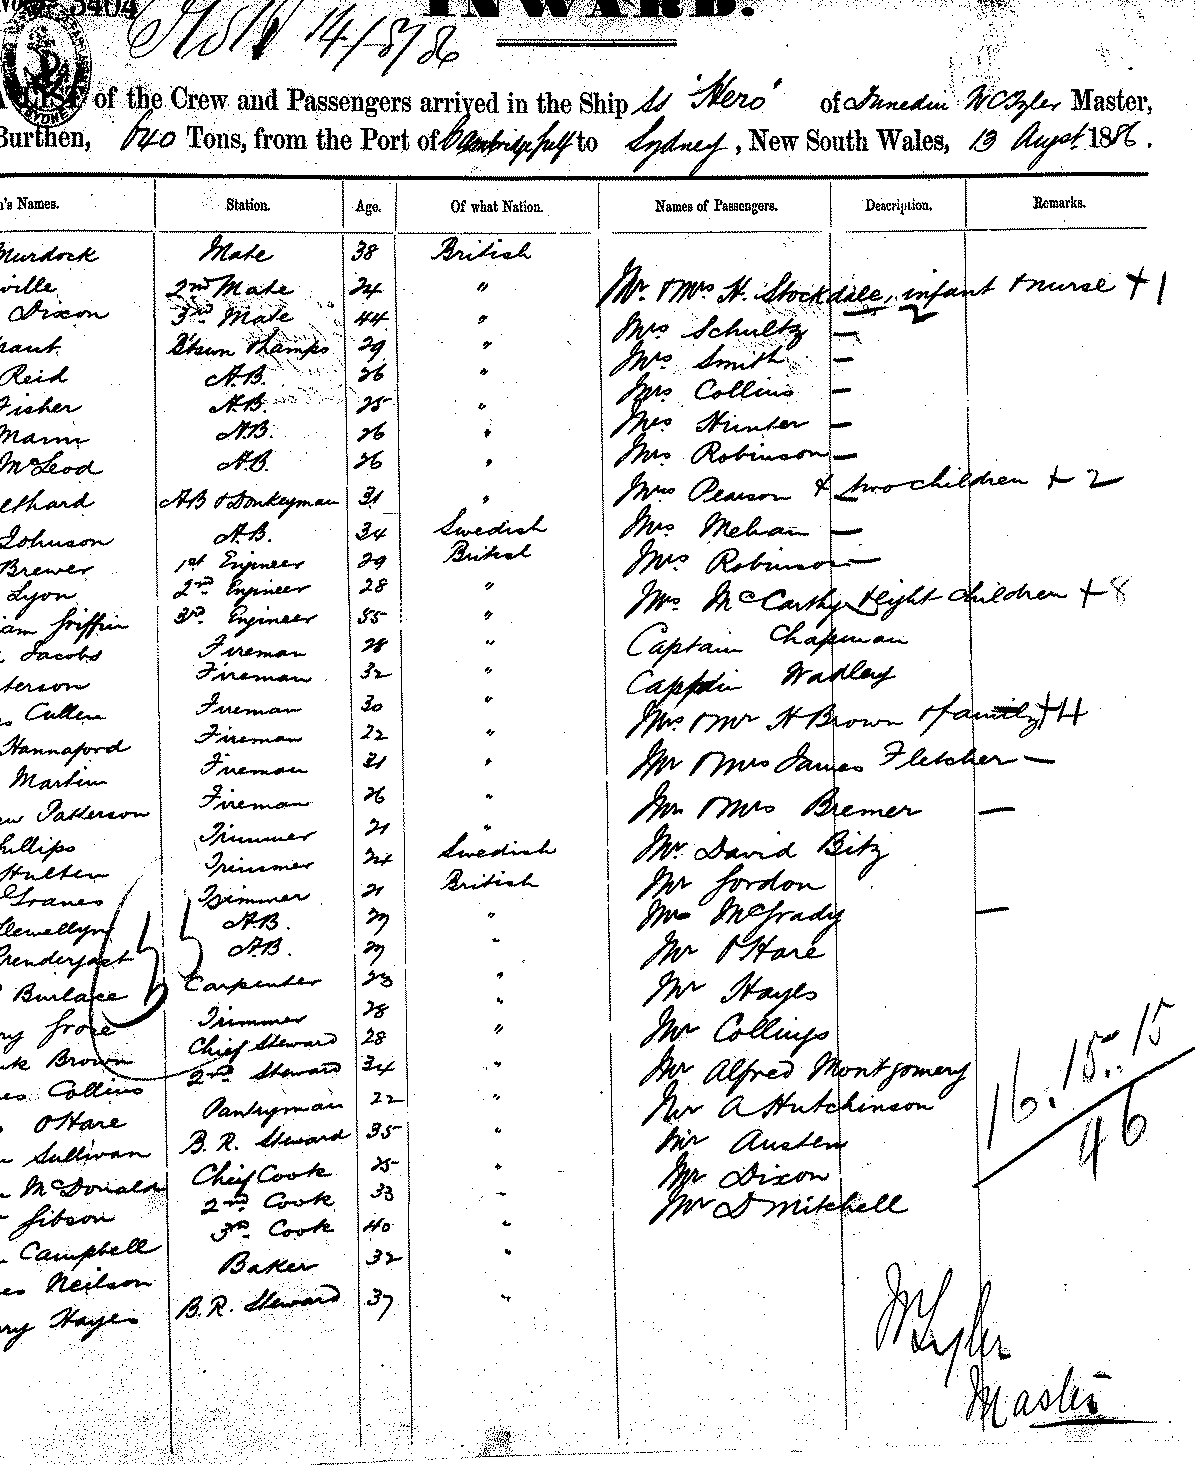 No 3404
INWARD.
14/8/86
A LIST of the Crew and Passengers arrived in the Ship ss "Hero" of Dunedin W C Tyler Master,
Burthen, 640 Tons, from the Port of Cambridge Gulf to Sydney, New South Wales, 13 Augst 1886.
n's Names. Station. Age. Of what Nation. Names of Passengers. Description. Remarks.
Murdock Mate 38 British
ville 2nd Mate 24 " Mr & Mrs H. Stockdale, infant & nurse + 1
Dixon 3rd Mate 44 " Mrs Schultz —
29 " Mrs Smith —
Reid A.B. 26 " Mrs Collins —
Fisher A.B. 25 " Mrs Hunter —
Mann A.B. 26 " Mrs Robinson —
McLeod A.B. 26 " Mrs Pearson & two children + 2
ethard AB & Donkeyman 31 " Mrs Mehan —
Johnson A.B. 34 Swedish Mrs Robinson —
Brewer 1st Engineer 29 British
Lyon 2nd Engineer 28 " Mrs McCarthy & eight children + 8
iam Griffin 3rd Engineer 55 " Captain Chapman
Jacobs Fireman 28 " Captain Wadley
terson Fireman 32 "
Cullen Fireman 30 " Mrs & Mr H Brown & family + 4
Hannaford Fireman 22 " Mr & Mrs James Fletcher —
Martin Fireman 31 "
ew Patterson Fireman 26 " Mr & Mrs Bremer —
hillips Trimmer 21 " Mr David Bitz
Hulten Trimmer 24 Swedish Mr Gordon
Trimmer 21 British Mrs McGrady —
Llewellyn A.B. 27 " Mr O'Hare
Prendergast A.B. 27 " Mr Hayes
Burlace Carpenter 23 " Mr Collings
ry Grose Trimmer 28 "
nk Brown Chief Steward 28 " Mr Alfred Montgomery
es Collins 2nd Steward 34 " Mr A Hutchinson
O'Hare Pantryman 22 " Mr Austen
n Sullivan B. R. Steward 35 " Mr Dixon
n McDonald Chief Cook 25 " Mr D Mitchell
Gibson 2nd Cook 33 "
Campbell 3rd Cook 40 "
es Neilson Baker 32 "
ry Hayes B. R. Steward 37 "
16. 15. 15
46
W C Tyler
Master